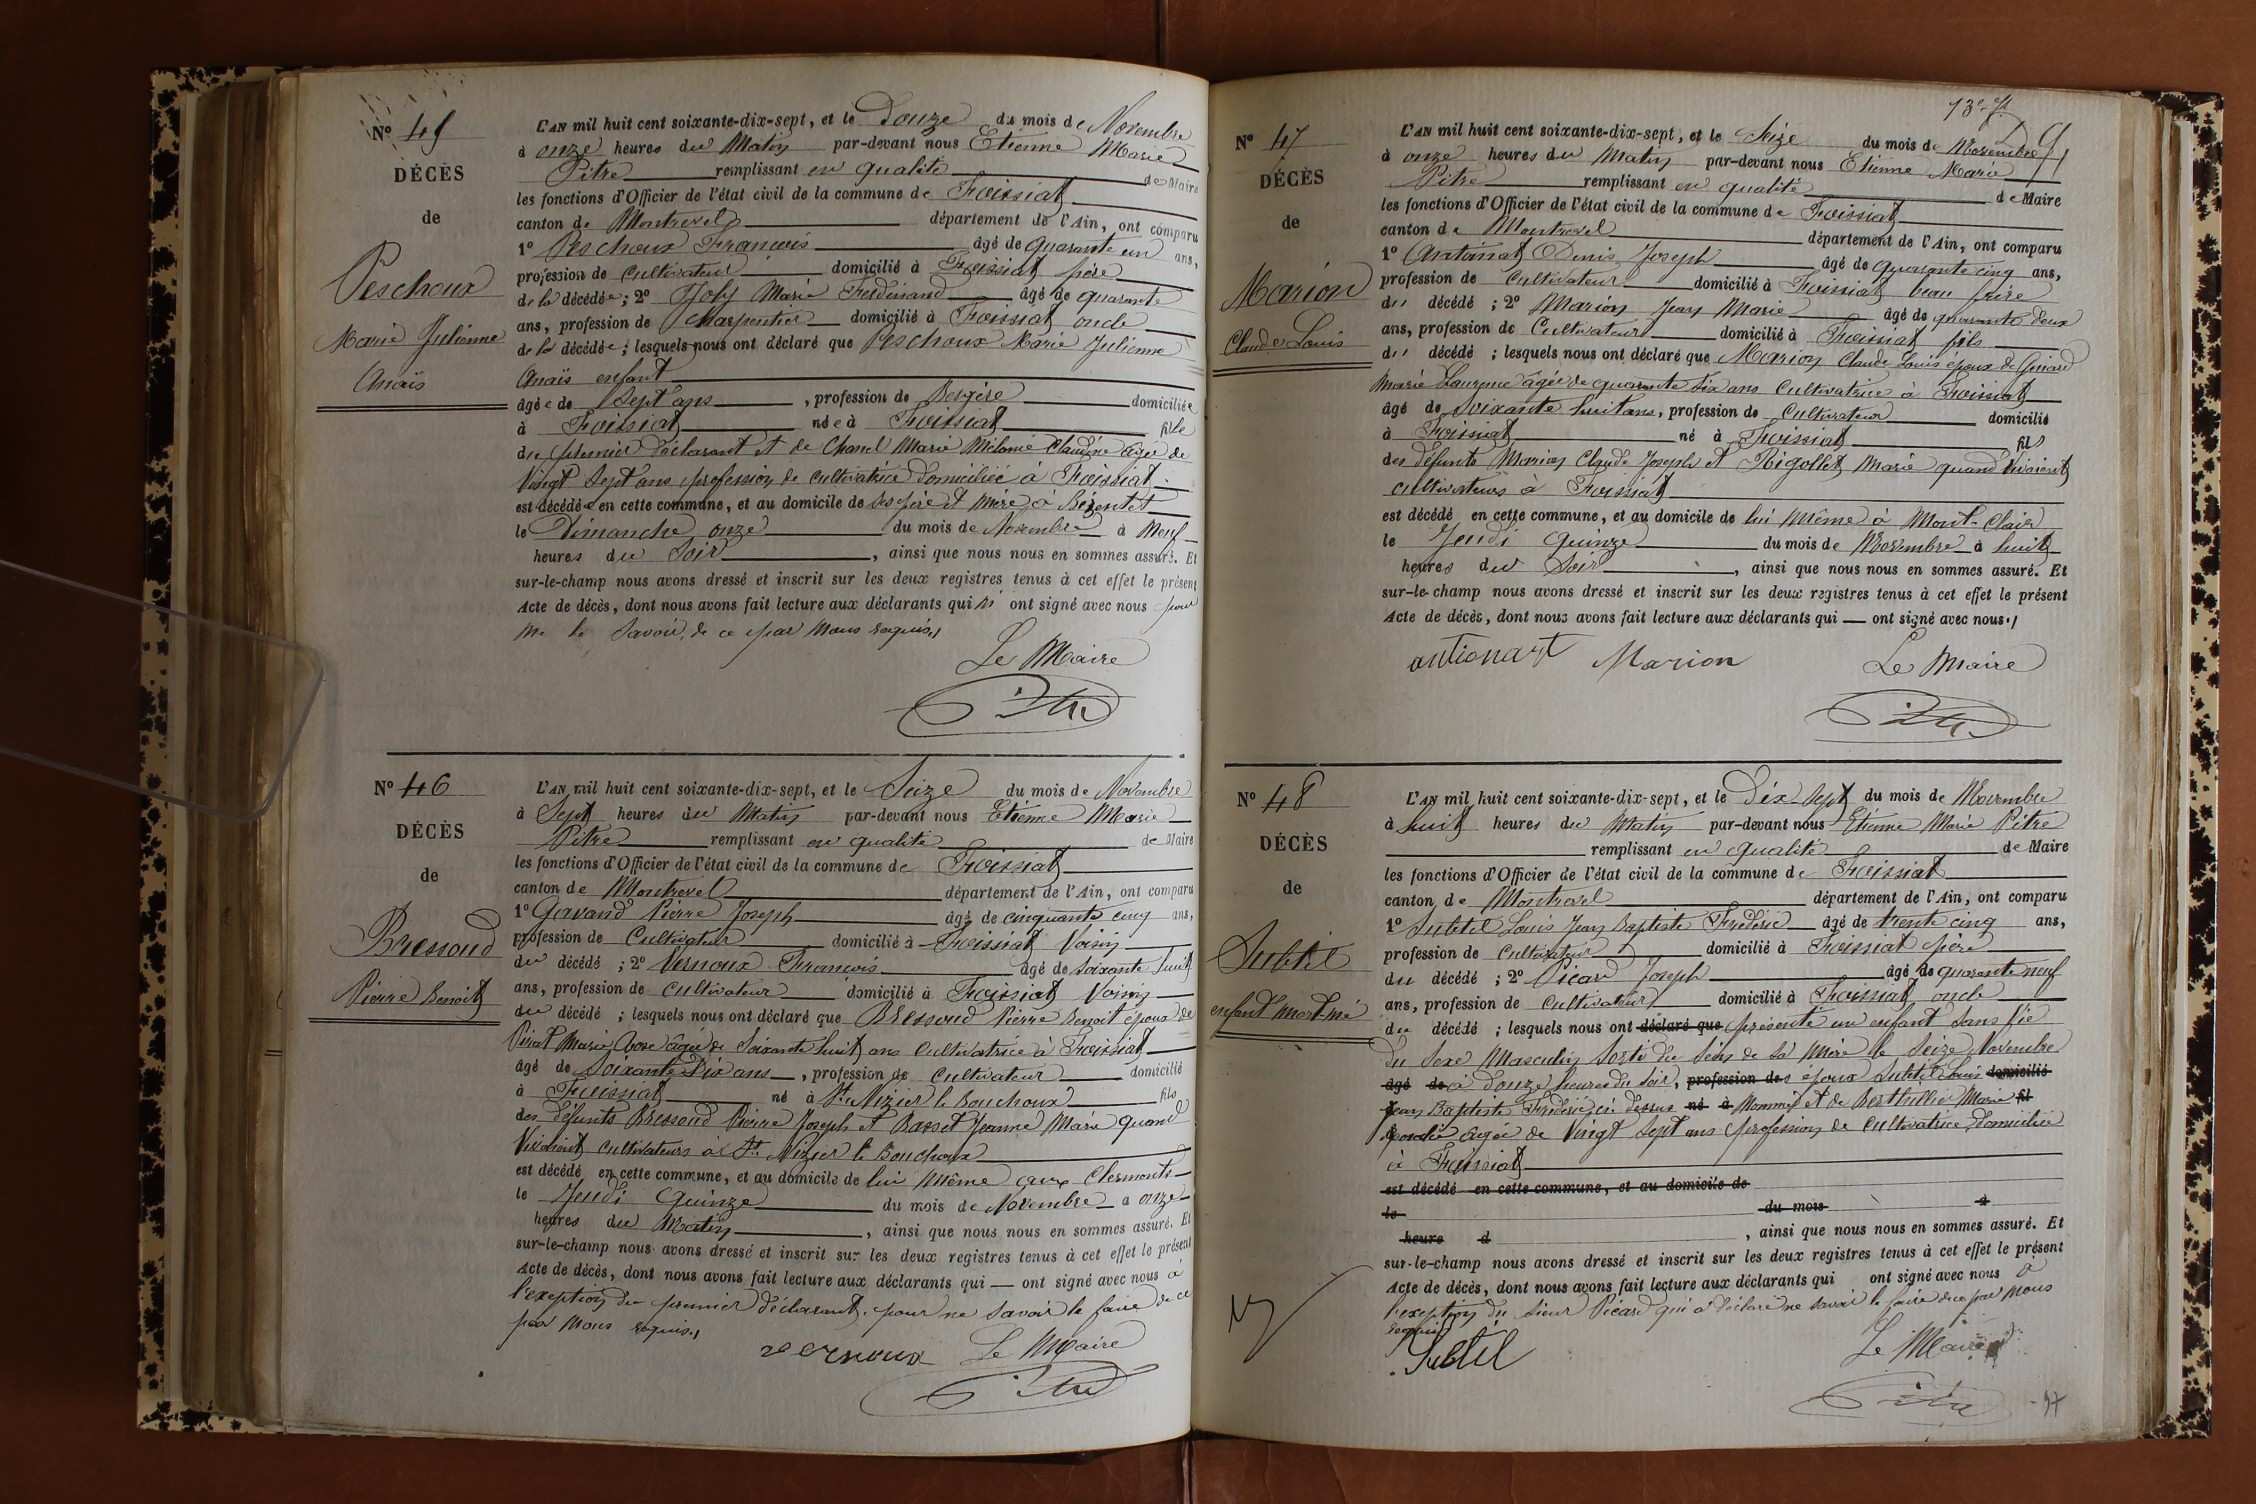 Nº 45
DÉCÈS
de
Peschoux
Marie Julienne
Anaïs
L'AN mil huit cent soixante-dix-sept, et le Douze du mois de Novembre
à onze heures du Matin par-devant nous Etienne Marie
Pitre remplissant en qualité de Maire
les fonctions d'Officier de l'état civil de la commune de Foissiat
canton de Montrevel département de l'Ain, ont comparu
1º Peschoux François âgé de quarante un ans,
profession de cultivateur domicilié à Foissiat père
de la décédée ; 2º Joly Marie Ferdinand âgé de quarante
ans, profession de Charpentier domicilié à Foissiat oncle
de la décédée ; lesquels nous ont déclaré que Peschoux Marie Julienne
Anaïs enfant
âgée de Sept ans , profession de Bergère domiciliée
à Foissiat née à Foissiat fille
du premier déclarant et de Chanel Marie Mélanie Claudine âgée de
Vingt Sept ans profession de cultivatrice domiciliée à Foissiat
est décédée en cette commune, et au domicile de ses père et mère à Bézentet
le Dimanche onze du mois de Novembre à Neuf
heures du Soir , ainsi que nous nous en sommes assuré. Et
sur-le-champ nous avons dressé et inscrit sur les deux registres tenus à cet effet le présent
Acte de décès, dont nous avons fait lecture aux déclarants qui n' ont signé avec nous pour
ne le Savoir, de ce par Nous requis.
Le Maire
Pitre
Nº 46
DÉCÈS
de
Bressoud
Pierre Benoit
L'AN mil huit cent soixante-dix-sept, et le Seize du mois de Novembre
à Sept heures du Matin par-devant nous Etienne Marie
Pitre remplissant en qualité de Maire
les fonctions d'Officier de l'état civil de la commune de Foissiat
canton de Montrevel département de l'Ain, ont comparu
1º Gavand Pierre Joseph âgé de cinquante cinq ans,
profession de Cultivateur domicilié à Foissiat Voisin
du décédé ; 2º Vernoux François âgé de soixante huit
ans, profession de cultivateur domicilié à Foissiat Voisin
du décédé ; lesquels nous ont déclaré que Bressoud Pierre Benoit époux de
Marie âgée de Soixante huit ans Cultivatrice à Foissiat
âgé de Soixante Dix ans , profession de Cultivateur domicilié
à Foissiat né à St. Nizier le Bouchoux fils
des défunts Bressoud Pierre Joseph et Basset Jeanne Marie quand
Vivaient cultivateurs à St. Nizier le Bouchoux
est décédé en cette commune, et au domicile de lui Même aux Clermonts
le Jeudi Quinze du mois de Novembre à onze
heures du Matin , ainsi que nous nous en sommes assuré. Et
sur-le-champ nous avons dressé et inscrit sur les deux registres tenus à cet effet le présent
Acte de décès, dont nous avons fait lecture aux déclarants qui — ont signé avec nous à
l'exeption du premier déclarant pour ne Savoir le faire de ce
par Nous requis.
vernoux Le Maire
Pitre
13e
Nº 47
DÉCÈS
de
Marion
Claude Louis
L'AN mil huit cent soixante-dix-sept, et le Seize du mois de Novembre
à onze heures du Matin par-devant nous Etienne Marie
Pitre remplissant en qualité de Maire
les fonctions d'Officier de l'état civil de la commune de Foissiat
canton de Montrevel département de l'Ain, ont comparu
1º Antoinat Denis Joseph âgé de quarante cinq ans,
profession de Cultivateur domicilié à Foissiat beau frère
du décédé ; 2º Marion Jean Marie âgé de quarante deux
ans, profession de Cultivateur domicilié à Foissiat fils
du décédé ; lesquels nous ont déclaré que Marion Claude Louis époux de
Marie Laurence âgée de quarante six ans Cultivatrice à Foissiat
âgé de soixante huit ans, profession de Cultivateur domicilié
à Foissiat né à Foissiat fils
des défunts Marion Claude Joseph et Rigollet Marie quand Vivaient
cultivateurs à Foissiat
est décédé en cette commune, et au domicile de lui Même à Mont-Clair
le Jeudi Quinze du mois de Novembre à huit
heures du Soir , ainsi que nous nous en sommes assuré. Et
sur-le-champ nous avons dressé et inscrit sur les deux registres tenus à cet effet le présent
Acte de décès, dont nous avons fait lecture aux déclarants qui — ont signé avec nous.
antionat Marion Le Maire
Pitre
Nº 48
DÉCÈS
de
Subtil
enfant mort-né
L'AN mil huit cent soixante-dix-sept, et le Dix Sept du mois de Novembre
à huit heures du Matin par-devant nous Etienne Marie Pitre
remplissant en qualité de Maire
les fonctions d'Officier de l'état civil de la commune de Foissiat
canton de Montrevel département de l'Ain, ont comparu
1º Subtil Louis Jean Baptiste Frédéric âgé de trente cinq ans,
profession de Cultivateur domicilié à Foissiat père
du décédé ; 2º Picard Joseph âgé de quarante neuf
ans, profession de Cultivateur domicilié à Foissiat oncle
du décédé ; lesquels nous ont déclaré que présenté un enfant Sans Vie
Du Sexe Masculin Sorti du Sein de sa Mère le Seize Novembre
âgé de à Douze heures du Soir, profession des époux Subtil Louis domicilié
Jean Baptiste Frédéric ci dessus né à Nommé et de Berthillier Marie fil
âgée de Vingt Sept ans profession de cultivatrice domiciliée
à Foissiat
est décédé en cette commune, et au domicile de
le du mois à
heure d , ainsi que nous nous en sommes assuré. Et
sur-le-champ nous avons dressé et inscrit sur les deux registres tenus à cet effet le présent
Acte de décès, dont nous avons fait lecture aux déclarants qui ont signé avec nous à
l'exeption du sieur Picard qui a déclaré ne savoir le faire de ce par Nous
requis
Subtil Le Maire
Pitre